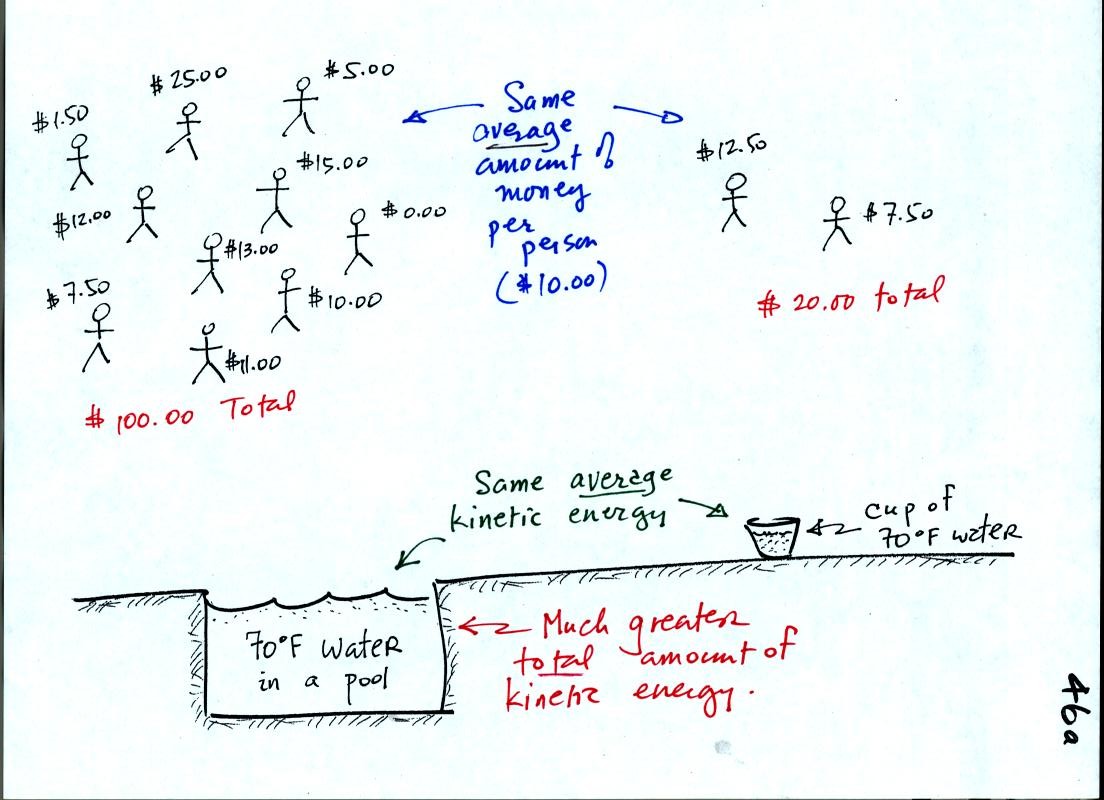 $1.50
$25.00
$5.00
$12.00
$15.00
$0.00
$13.00
$7.50
$10.00
$11.00
$100.00 Total
Same
average
amount of
money
per
person
($10.00)
$12.50
$7.50
$20.00 total
Same average
kinetic energy
cup of
70°F water
70°F water
in a pool
Much greater
total amount of
kinetic energy.
46a